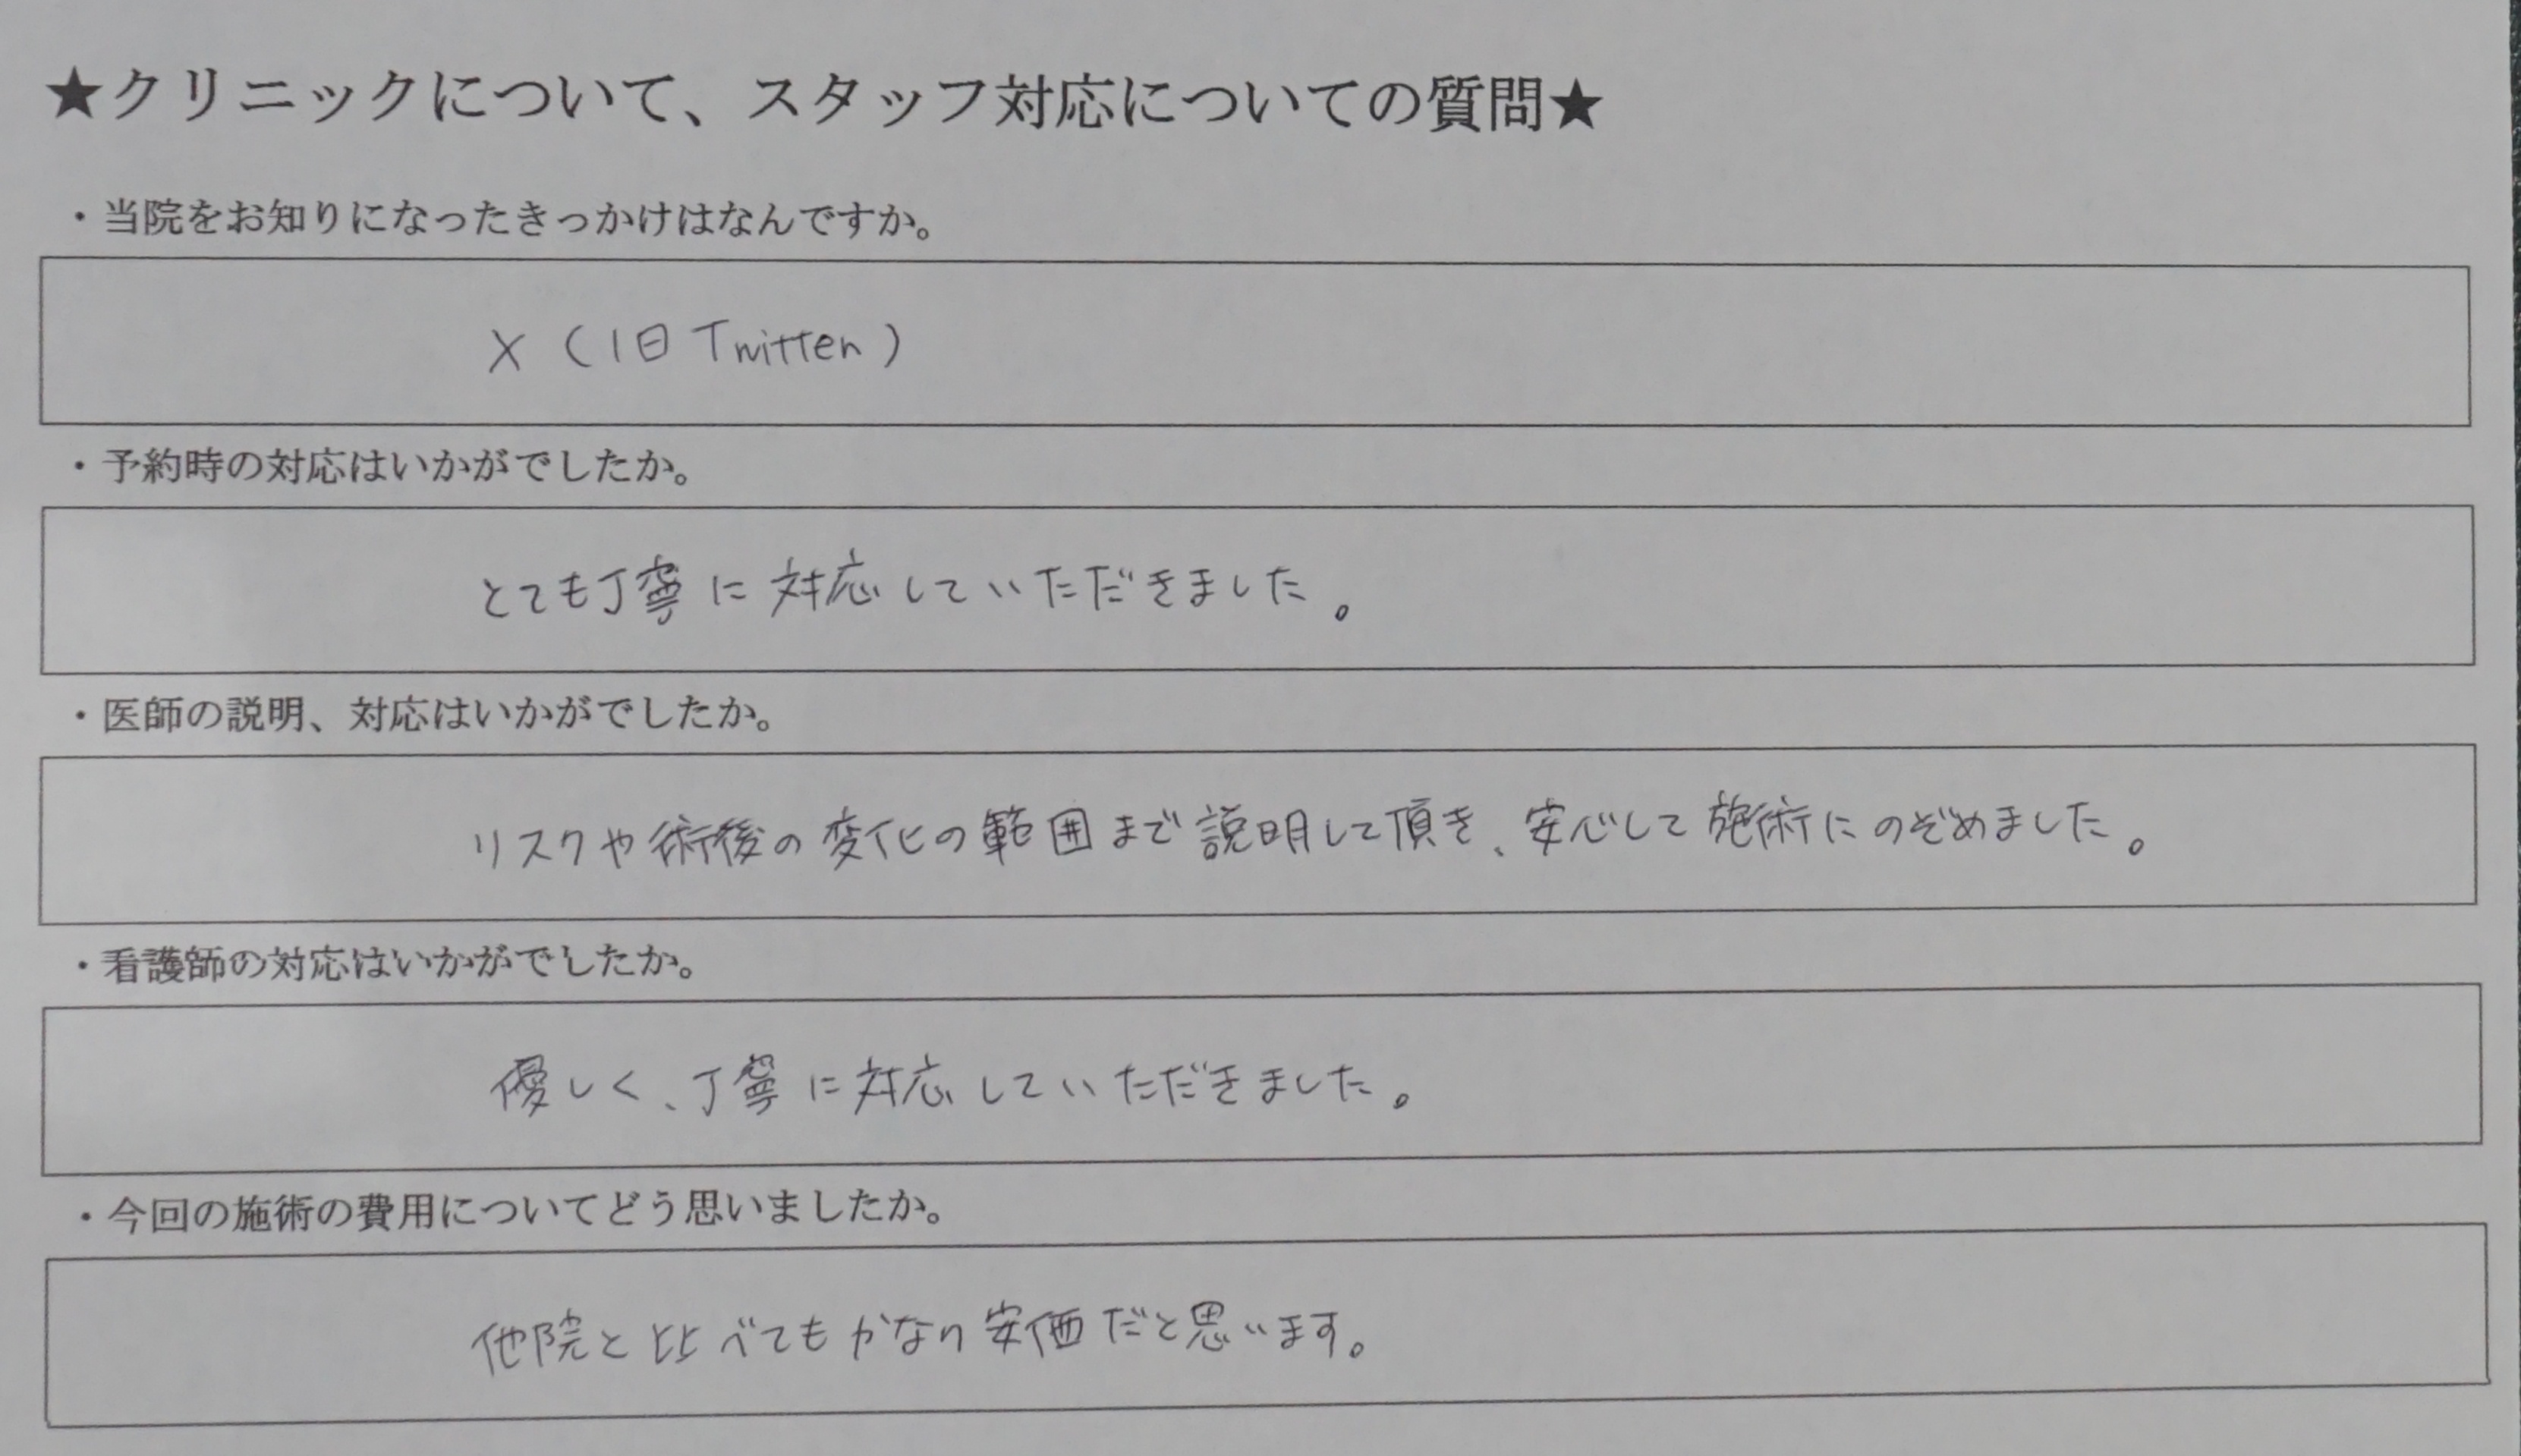 ★クリニックについて、スタッフ対応についての質問★
・当院をお知りになったきっかけはなんですか。
X（旧Twitter）
・予約時の対応はいかがでしたか。
とても丁寧に対応していただきました。
・医師の説明、対応はいかがでしたか。
リスクや術後の変化の範囲まで説明して頂き、安心して施術にのぞめました。
・看護師の対応はいかがでしたか。
優しく、丁寧に対応していただきました。
・今回の施術の費用についてどう思いましたか。
他院と比べてもかなり安価だと思います。